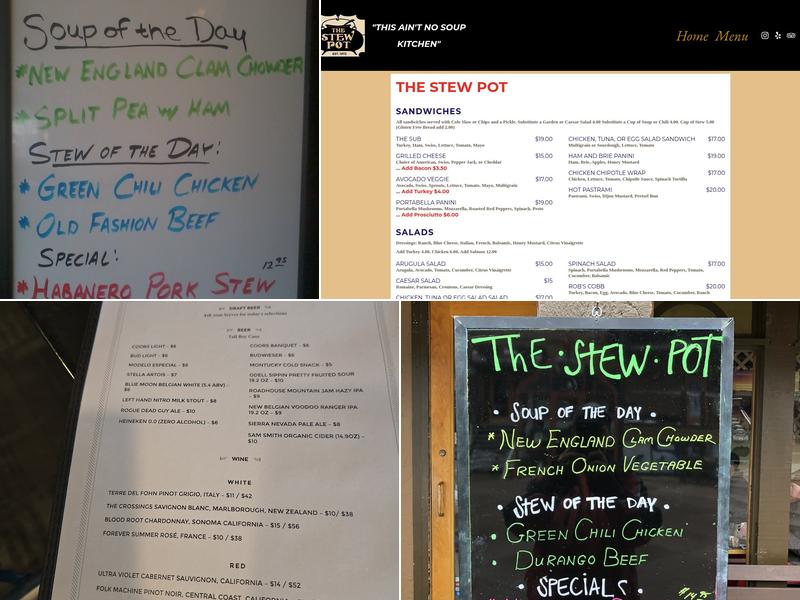 Soup of the Day
*NEW ENGLAND CLAM CHOWDER
*SPLIT PEA w/ HAM
STEW OF THE DAY:
*GREEN CHILI CHICKEN
*OLD FASHION BEEF
SPECIAL:
12 95
*HABANERO PORK STEW
THE
STEW
POT
EST. 1972
"THIS AIN'T NO SOUP
KITCHEN"
Home Menu
THE STEW POT
SANDWICHES
All sandwiches served with Cole Slaw or Chips and a Pickle. Substitute a Garden or Caesar Salad 4.00 Substitute a Cup of Soup or Chili 4.00. Cup of Stew 5.00
(Gluten Free Bread add 2.00)
THE SUB $19.00
Turkey, Ham, Swiss, Lettuce, Tomato, Mayo
GRILLED CHEESE $15.00
Choice of American, Swiss, Pepper Jack, or Cheddar
... Add Bacon $3.50
AVOCADO VEGGIE $17.00
Avocado, Swiss, Sprouts, Lettuce, Tomato, Mayo, Multigrain
... Add Turkey $4.00
PORTABELLA PANINI $19.00
Portabella Mushrooms, Mozzarella, Roasted Red Peppers, Spinach, Pesto
... Add Prosciutto $6.00
CHICKEN, TUNA, OR EGG SALAD SANDWICH $17.00
Multigrain or Sourdough, Lettuce, Tomato
HAM AND BRIE PANINI $19.00
Ham, Brie, Apples, Honey Mustard
CHICKEN CHIPOTLE WRAP $17.00
Chicken, Lettuce, Tomato, Chipotle Sauce, Spinach Tortilla
HOT PASTRAMI $20.00
Pastrami, Swiss, Dijon Mustard, Pretzel Bun
SALADS
Dressings: Ranch, Blue Cheese, Italian, French, Balsamic, Honey Mustard, Citrus Vinaigrette
Add Turkey 4.00. Chicken 6.00. Add Salmon 12.00
ARUGULA SALAD $15.00
Arugula, Avocado, Tomato, Cucumber, Citrus Vinaigrette
CAESAR SALAD $15
Romaine, Parmesan, Croutons, Caesar Dressing
CHICKEN, TUNA OR EGG SALAD SALAD $17.00
SPINACH SALAD $17.00
Spinach, Portabella Mushrooms, Mozzarella, Red Peppers, Tomato,
Cucumber, Balsamic
ROB'S COBB $20.00
Turkey, Bacon, Egg, Avocado, Blue Cheese, Tomato, Cucumber, Ranch
DRAFT BEER
Ask your Server for today's selections
BEER
Tall Boy Cans
COORS LIGHT - $6
BUD LIGHT - $6
MODELO ESPECIAL - $6
STELLA ARTOIS - $7
BLUE MOON BELGIAN WHITE (5.4 ABV) -
$8
LEFT HAND NITRO MILK STOUT - $8
ROGUE DEAD GUY ALE - $10
HEINEKEN 0.0 (ZERO ALCOHOL) - $6
COORS BANQUET - $6
BUDWEISER - $6
MONTUCKY COLD SNACK - $5
ODELL SIPPIN PRETTY FRUITED SOUR
19.2 OZ - $10
ROADHOUSE MOUNTAIN JAM HAZY IPA
- $9
NEW BELGIAN VOODOO RANGER IPA
19.2 OZ - $9
SIERRA NEVADA PALE ALE - $8
SAM SMITH ORGANIC CIDER (14.9OZ) -
$10
WINE
WHITE
TERRE DEL FOHN PINOT GRIGIO, ITALY - $11 / $42
THE CROSSINGS SAVIGNON BLANC, MARLBOROUGH, NEW ZEALAND - $10/ $38
BLOOD ROOT CHARDONNAY, SONOMA CALIFORNIA - $15 / $56
FOREVER SUMMER ROSÉ, FRANCE - $10 / $38
RED
ULTRA VIOLET CABERNET SAUVIGNON, CALIFORNIA - $14 / $52
FOLK MACHINE PINOT NOIR, CENTRAL COAST, CALIFORNIA
THE·STEW·POT
• SOUP OF THE DAY •
* NEW ENGLAND CLAM CHOWDER
* FRENCH ONION VEGETABLE
• STEW OF THE DAY •
• GREEN CHILI CHICKEN
• DURANGO BEEF
• SPECIALS •
$14.95